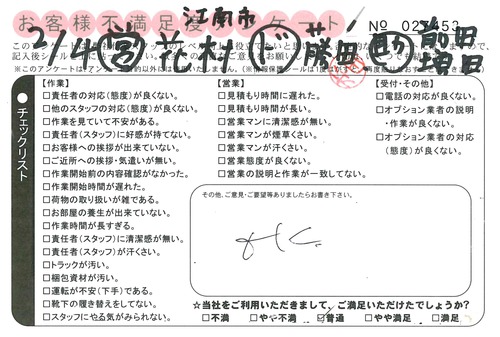 江南市
お客様不満足度アンケート
№ 023453
2/4 営 花村 ド 勝田 助 前田
増田
【作業】
□責任者の対応(態度)が良くない。
□他のスタッフの対応(態度)が良くない。
□作業を見ていて不安がある。
□責任者(スタッフ)に好感が持てない。
□お客様への挨拶が出来ていない。
□ご近所への挨拶・気遣いが無い。
□作業開始前の内容確認がなかった。
□作業開始時間が遅れた。
□荷物の取り扱いが雑である。
□お部屋の養生が出来ていない。
□作業時間が長すぎる。
□責任者(スタッフ)に清潔感が無い。
□責任者(スタッフ)が汗くさい。
□トラックが汚い。
□梱包資材が汚い。
□運転が不安(下手)である。
□靴下の履き替えをしてない。
□スタッフにやる気がみられない。
【営業】
□見積もり時間に遅れた。
□見積もり時間が長い。
□営業マンに清潔感が無い。
□営業マンが煙草くさい。
□営業マンが汗くさい。
□営業態度が良くない。
□営業の説明と作業が一致してない。
【受付・その他】
□電話の対応が良くない。
□オプション業者の説明
・作業が良くない。
□オプション業者の対応
(態度)が良くない。
チェックリスト
その他、ご意見・ご要望等ありましたらお書き下さい。
☆当社をご利用いただきまして、ご満足いただけたでしょうか?
□不満 □やや不満 ☑普通 □やや満足 □満足